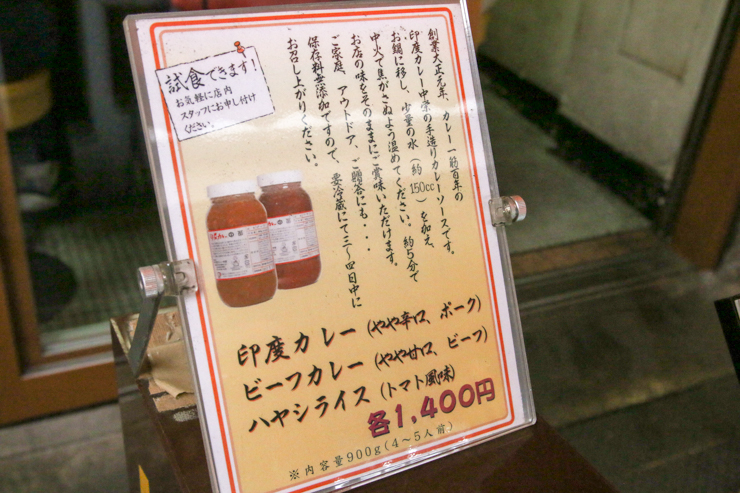 試食できます!
お気軽に店内
スタッフにお申し付け
ください。
創業大正元年、カレー一筋百年の
印度カレー中栄の手造りカレーソースです。
お鍋に移し、少量の水(約150cc)を加え、
中火で焦がさぬよう温めてください。約5分で
お店の味をそのままにご賞味いただけます。
ご家庭、アウトドア、ご贈答にも・・・
保存料無添加ですので、要冷蔵にて三〜四日中に
お召し上がりください。
印度カレー(やや辛口、ポーク)
ビーフカレー(やや甘口、ビーフ)
ハヤシライス(トマト風味)
各1,400円
※内容量900g(4~5人前)